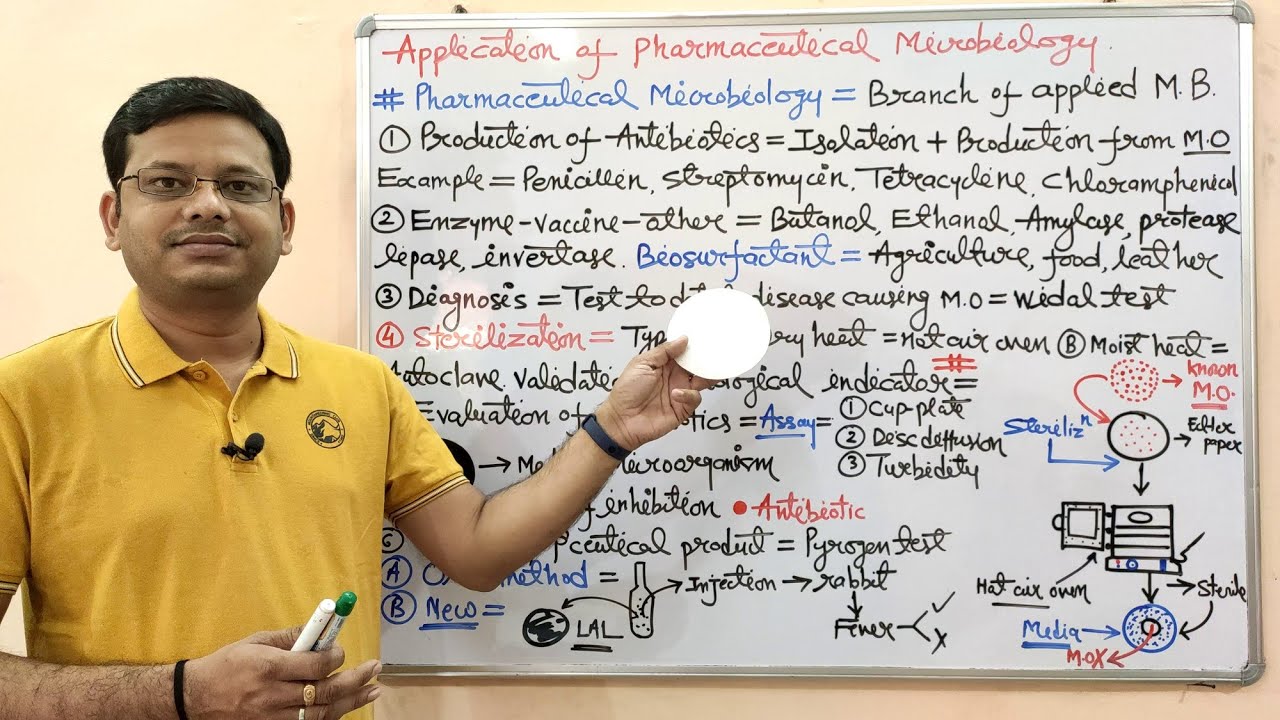 Application of Pharmaceutical Microbiology.
# Pharmaceutical Microbiology = Branch of applied M.B.
① Production of Antibiotics = Isolation + Production from M.O
Example = Penicillin, Streptomycin, Tetracycline, Chloramphenicol
② Enzyme-vaccine-other = Butanol, Ethanol, Amylase, protease
lipase, invertase. Biosurfactant = Agriculture, food, leather
③ Diagnosis = Test to disease causing M.O = Widal test
④ Sterilization = heat = Hot air oven Ⓑ Moist heat =
Autoclave indicator =
Evaluation of = Assay =
① Cup-plate
② Disc diffusion
③ Turbidity
→ microorganism
of inhibition • Antibiotic
⑥ product = Pyrogen test
Ⓐ method = Injection → rabbit
Ⓑ New = LAL
Fever ✓
X
known
M.O.
Steriliz^n
Filter
paper
Hot air oven
Sterile
Media
M.OX